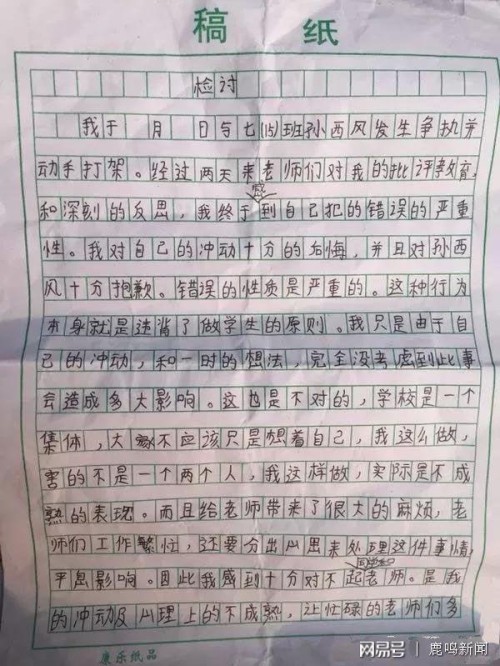 稿 纸
检讨
我于 月 日与七(15)班孙西风发生争执并
动手打架。经过两天来老师们对我的批评教育,
和深刻的反思,我终于感到自己犯的错误的严重
性。我对自己的冲动十分的后悔,并且对孙西
风十分抱歉。错误的性质是严重的。这种行为
本身就是违背了做学生的原则。我只是由于自
己的冲动,和一时的想法,完全没考虑到此事
会造成多大影响。这也是不对的,学校是一个
集体,大家不应该只是想着自己,我这么做,
害的不是一个两个人,我这样做,实际是不成
熟的表现。而且给老师带来了很大的麻烦,老
师们工作繁忙,还要分出心思来处理这件事情,
平息影响。因此我感到十分对不起老师。是我
的冲动及心理上的不成熟,让忙碌的老师们多
康乐纸品
网易号 | 鹿鸣新闻